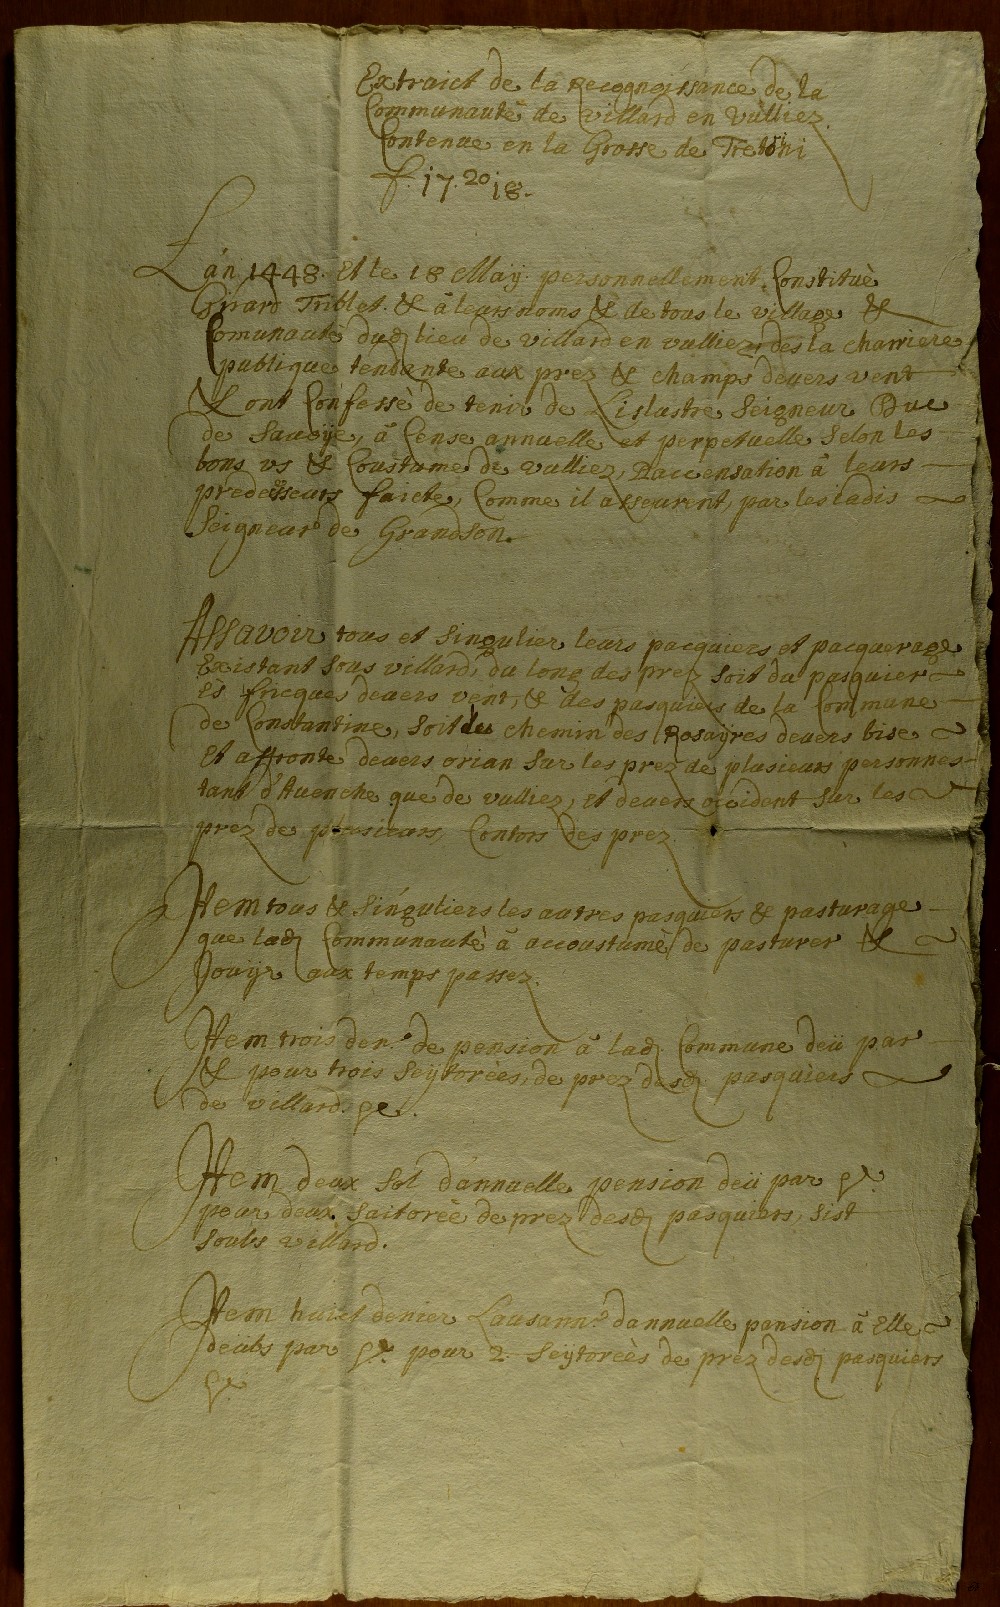 Extraict de la Recognoissance de la
Communauté de Villard en Vulliez.
Contenue en la Grosse de
f. 17. 20 18.
L'an 1448. Et le 18 May. personnellement. Constituè
Girard Triblet. & â leurs noms & de tous le village &
Comunautè dud lieu de villard en vulliez, dès la charriere
publique tendante aux prez & champs devers vent
& ont Confessè de tenir de L'islustre Seigneur Duc
de Savoÿe, â Cense annuelle et perpetuelle selon les
bons vs & Coustume de vulliez, D'accensation â leurs
predecesseurs faicte, Comme il asseurent, par les iadis
Seigneurs de Grandson.
Assavoir tous et singulier leurs pacquiers et pacquerage
Existant sous villard, du long des prez soit du pasquier
Es fricques devers vent, & des pasquiers de la Commune
de Constantine, soit du chemin des Rosaÿres devers bise
Et affronte devers orian sur les prez de plusieurs personnes
tant d'Avenche que de vulliez, et devers occident sur les
prez de plusieurs, Contors des prez.
Item tous & singuliers les autres pasquiers & pasturage
que lad Communautè â accoustumè de pasturer &
Jouÿr aux temps passez.
Item trois den.s de pension â lad Commune deü par
& pour trois seÿtorèes, de prez desd pasquiers
de villard. &c.
Item deux sol d'annuelle pension deü par &c.
pour deux saitorèe de prez desd pasquiers, sist
soubs villard.
Item huict denier Lausann.s d'annuelle pansion â Elle
deübs par &c. pour 2. seÿtorèes de prez desd pasquiers
&c.